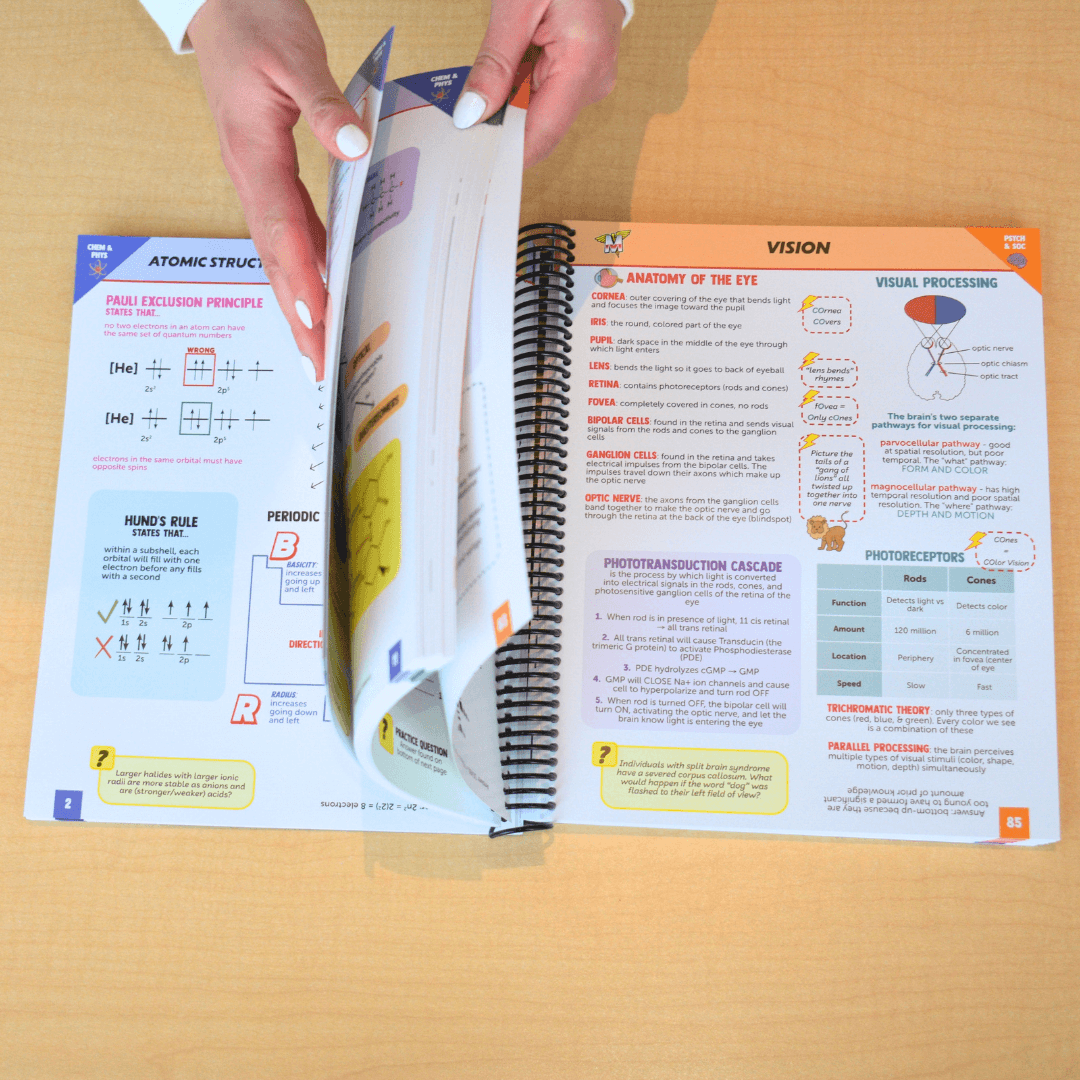 CHEM &
PHYS
ATOMIC STRUCT
PAULI EXCLUSION PRINCIPLE
STATES THAT...
no two electrons in an atom can have
the same set of quantum numbers
WRONG
[He]
2s² 2p³
[He]
2s² 2p³
electrons in the same orbital must have
opposite spins
HUND'S RULE
STATES THAT...
within a subshell, each
orbital will fill with one
electron before any fills
with a second
1s 2s 2p
1s 2s 2p
PERIODIC
B
BASICITY:
increases
going up
and left
DIRECTIO
R
RADIUS:
increases
going down
and left
?
Larger halides with larger ionic
radii are more stable as anions and
are (stronger/weaker) acids?
2
CHEM &
PHYS
?
PRACTICE QUESTION
Answer found on
bottom of next page
2n² = 2(2²) = 8 electrons
M
VISION
PSYCH
& SOC
ANATOMY OF THE EYE
CORNEA: outer covering of the eye that bends light
and focuses the image toward the pupil
IRIS: the round, colored part of the eye
PUPIL: dark space in the middle of the eye through
which light enters
LENS: bends the light so it goes to back of eyeball
RETINA: contains photoreceptors (rods and cones)
FOVEA: completely covered in cones, no rods
BIPOLAR CELLS: found in the retina and sends visual
signals from the rods and cones to the ganglion
cells
GANGLION CELLS: found in the retina and takes
electrical impulses from the bipolar cells. The
impulses travel down their axons which make up
the optic nerve
OPTIC NERVE: the axons from the ganglion cells
band together to make the optic nerve and go
through the retina at the back of the eye (blindspot)
COrnea
COvers
"lens bends"
rhymes
fOvea =
Only cOnes
Picture the
tails of a
"gang of
lions" all
twisted up
together into
one nerve
PHOTOTRANSDUCTION CASCADE
is the process by which light is converted
into electrical signals in the rods, cones, and
photosensitive ganglion cells of the retina of the
eye
1. When rod is in presence of light, 11 cis retinal
→ all trans retinal
2. All trans retinal will cause Transducin (the
trimeric G protein) to activate Phosphodiesterase
(PDE)
3. PDE hydrolyzes cGMP → GMP
4. GMP will CLOSE Na+ ion channels and cause
cell to hyperpolarize and turn rod OFF
5. When rod is turned OFF, the bipolar cell will
turn ON, activating the optic nerve, and let the
brain know light is entering the eye
?
Individuals with split brain syndrome
have a severed corpus callosum. What
would happen if the word "dog" was
flashed to their left field of view?
VISUAL PROCESSING
optic nerve
optic chiasm
optic tract
The brain's two separate
pathways for visual processing:
parvocellular pathway - good
at spatial resolution, but poor
temporal. The "what" pathway:
FORM AND COLOR
magnocellular pathway - has high
temporal resolution and poor spatial
resolution. The "where" pathway:
DEPTH AND MOTION
PHOTORECEPTORS
COnes
=
COlor Vision
Rods Cones
Function Detects light vs dark Detects color
Amount 120 million 6 million
Location Periphery Concentrated in fovea (center of eye
Speed Slow Fast
TRICHROMATIC THEORY: only three types of
cones (red, blue, & green). Every color we see
is a combination of these
PARALLEL PROCESSING: the brain perceives
multiple types of visual stimuli (color, shape,
motion, depth) simultaneously
Answer: bottom-up because they are
too young to have formed a significant
amount of prior knowledge
85